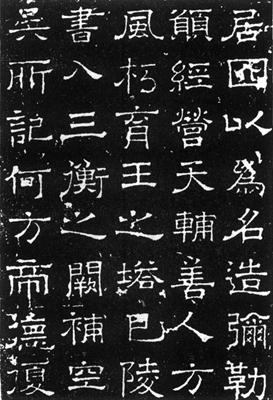 居因以為名造彌勒
願經營天輔善人方
風朽育王之塔巴陵
書八三衡之闕補空
吳所記何方帝德復